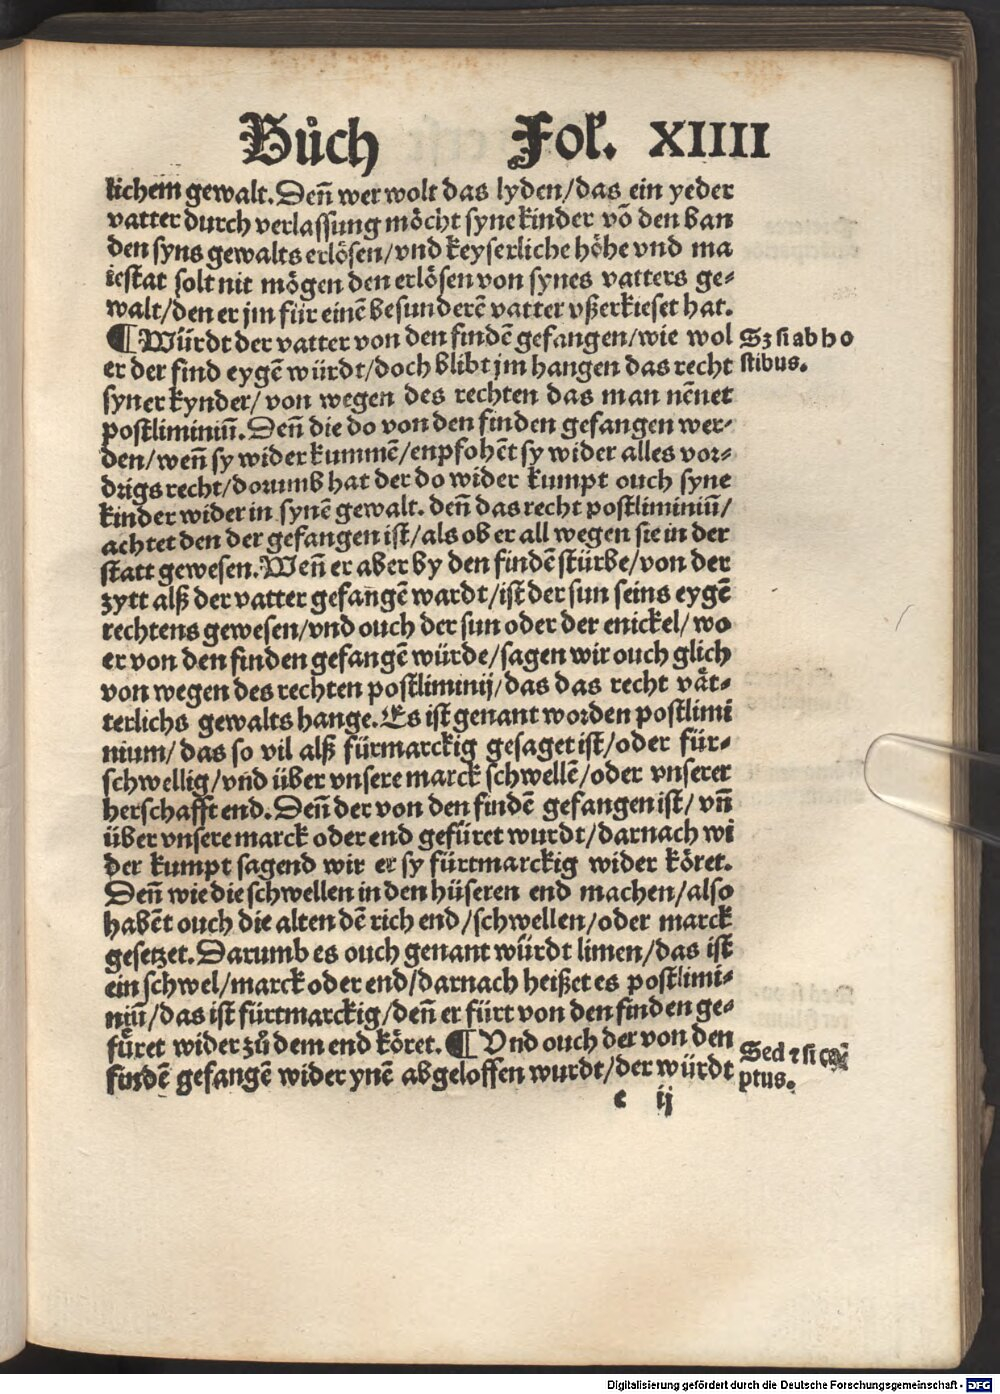 Bůch Fol. XIIII
lichem gewalt. Deñ wer wolt das lyden/das ein yeder
vatter durch verlassung möcht syne kinder võ den ban
den syns gewalts erlösen/vnd keyserliche höhe vnd ma
iestat solt nit mögen den erlösen von synes vatters ge⸗
walt/den er jm für einẽ besunderẽ vatter vßerkieset hat.
¶ Würdt der vatter von den findẽ gefangen/wie wol
Sz si ab ho
er der find eygẽ würdt/doch blibt jm hangen das recht
stibus.
syner kynder/ von wegen des rechten das man nẽnet
postliminiũ. Deñ die do von den finden gefangen wer⸗
den/weñ sy wider kummẽ/enpfohẽt sy wider alles vor⸗
drigs recht/dorumb hat der do wider kumpt ouch syne
kinder wider in synẽ gewalt. deñ das recht postliminiũ/
achtet den der gefangen ist/als ob er all wegen sie in der
statt gewesen. Weñ er aber by den findẽ stürbe/von der
zytt alß der vatter gefangẽ wardt/ist der sun seins eygẽ
rechtens gewesen/vnd ouch der sun oder der enickel/ wo
er von den finden gefangẽ würde/sagen wir ouch glich
von wegen des rechten postliminij/das das recht vät⸗
terlichs gewalts hange. Es ist genant worden postlimi
nium/ das so vil alß fürmarckig gesaget ist/oder für⸗
schwellig/vnd über vnsere marck schwellẽ/oder vnserer
herschafft end. Deñ der von den findẽ gefangen ist/ vñ
über vnsere marck oder end gefüret wurdt/darnach wi
der kumpt sagend wir er sy fürtmarckig wider köret.
Deñ wie die schwellen in den hüseren end machen/also
habẽt ouch die alten dẽ rich end/schwellen/oder marck
gesetzet. Darumb es ouch genant würdt limen/das ist
ein schwel/marck oder end/darnach heißet es postlimi⸗
niũ/das ist fürtmarckig/deñ er fürt von den finden ge⸗
füret wider zů dem end köret. ¶ Vnd ouch der von den
Sed ⁊ si ca
findẽ gefangẽ wider ynẽ abgeloffen wurdt/der würdt
ptus.
c ij
Digitalisierung gefördert durch die Deutsche Forschungsgemeinschaft - DFG